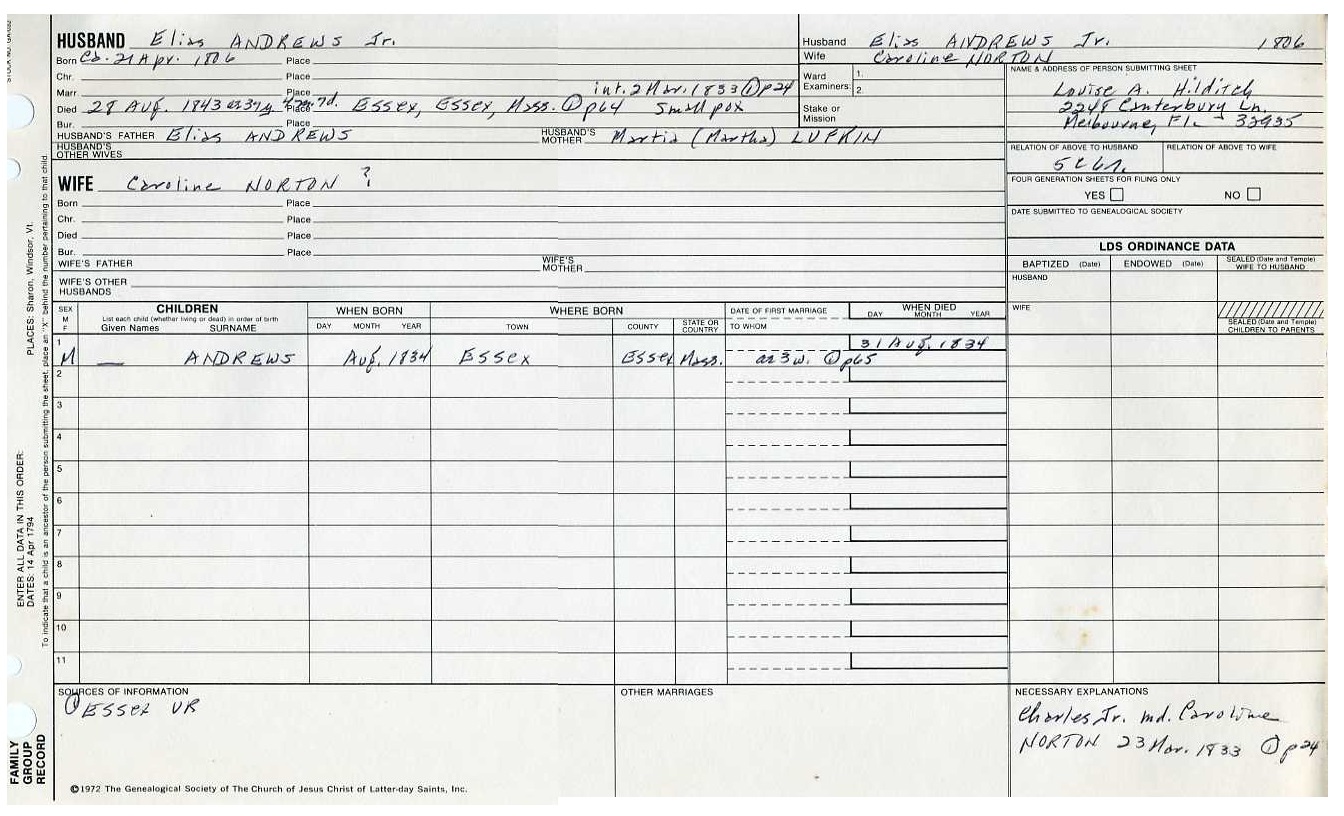 HUSBAND Elias ANDREWS Jr.
Husband Elias ANDREWS Jr. 1806
Wife Caroline NORTON
Born Cb. 21 Apr. 1806 Place
Chr. Place
Marr. Place int. 2 Mar. 1833 ① p24
Died 28 Aug. 1843 ae 37y 4m 7d. Place Essex, Essex, Mass. ① p64 Small pox
Bur. Place
HUSBAND'S FATHER Elias ANDREWS
HUSBAND'S MOTHER Martia (Martha) LUFKIN
HUSBAND'S OTHER WIVES
Ward Examiners: 1.
2.
Stake or Mission
NAME & ADDRESS OF PERSON SUBMITTING SHEET
Louise A. Hilditch
2248 Canterbury Ln.
Melbourne, Fl. - 32935
RELATION OF ABOVE TO HUSBAND
RELATION OF ABOVE TO WIFE
FOUR GENERATION SHEETS FOR FILING ONLY
YES NO
DATE SUBMITTED TO GENEALOGICAL SOCIETY
WIFE Caroline NORTON ?
Born Place
Chr. Place
Died Place
Bur. Place
WIFE'S FATHER
WIFE'S MOTHER
WIFE'S OTHER HUSBANDS
LDS ORDINANCE DATA
BAPTIZED (Date) ENDOWED (Date) SEALED (Date and Temple) WIFE TO HUSBAND
HUSBAND
WIFE
SEALED (Date and Temple) CHILDREN TO PARENTS
SEX M F
CHILDREN
List each child (whether living or dead) in order of birth
Given Names SURNAME
WHEN BORN
DAY MONTH YEAR
WHERE BORN
TOWN COUNTY STATE OR COUNTRY
DATE OF FIRST MARRIAGE
TO WHOM
WHEN DIED
DAY MONTH YEAR
1 31 Aug. 1834
M — ANDREWS Aug. 1834 Essex Essex Mass. ae 3 w. ① p65
2
3
4
5
6
7
8
9
10
11
SOURCES OF INFORMATION
① Essex VR
OTHER MARRIAGES
NECESSARY EXPLANATIONS
Charles Jr. md. Caroline
NORTON 23 Mar. 1833 ① p24
©1972 The Genealogical Society of The Church of Jesus Christ of Latter-day Saints, Inc.
FAMILY GROUP RECORD
ENTER ALL DATA IN THIS ORDER:
DATES: 14 Apr 1794
PLACES: Sharon, Windsor, Vt.
To indicate that a child is an ancestor of the person submitting the sheet, place an "X" behind the number pertaining to that child.